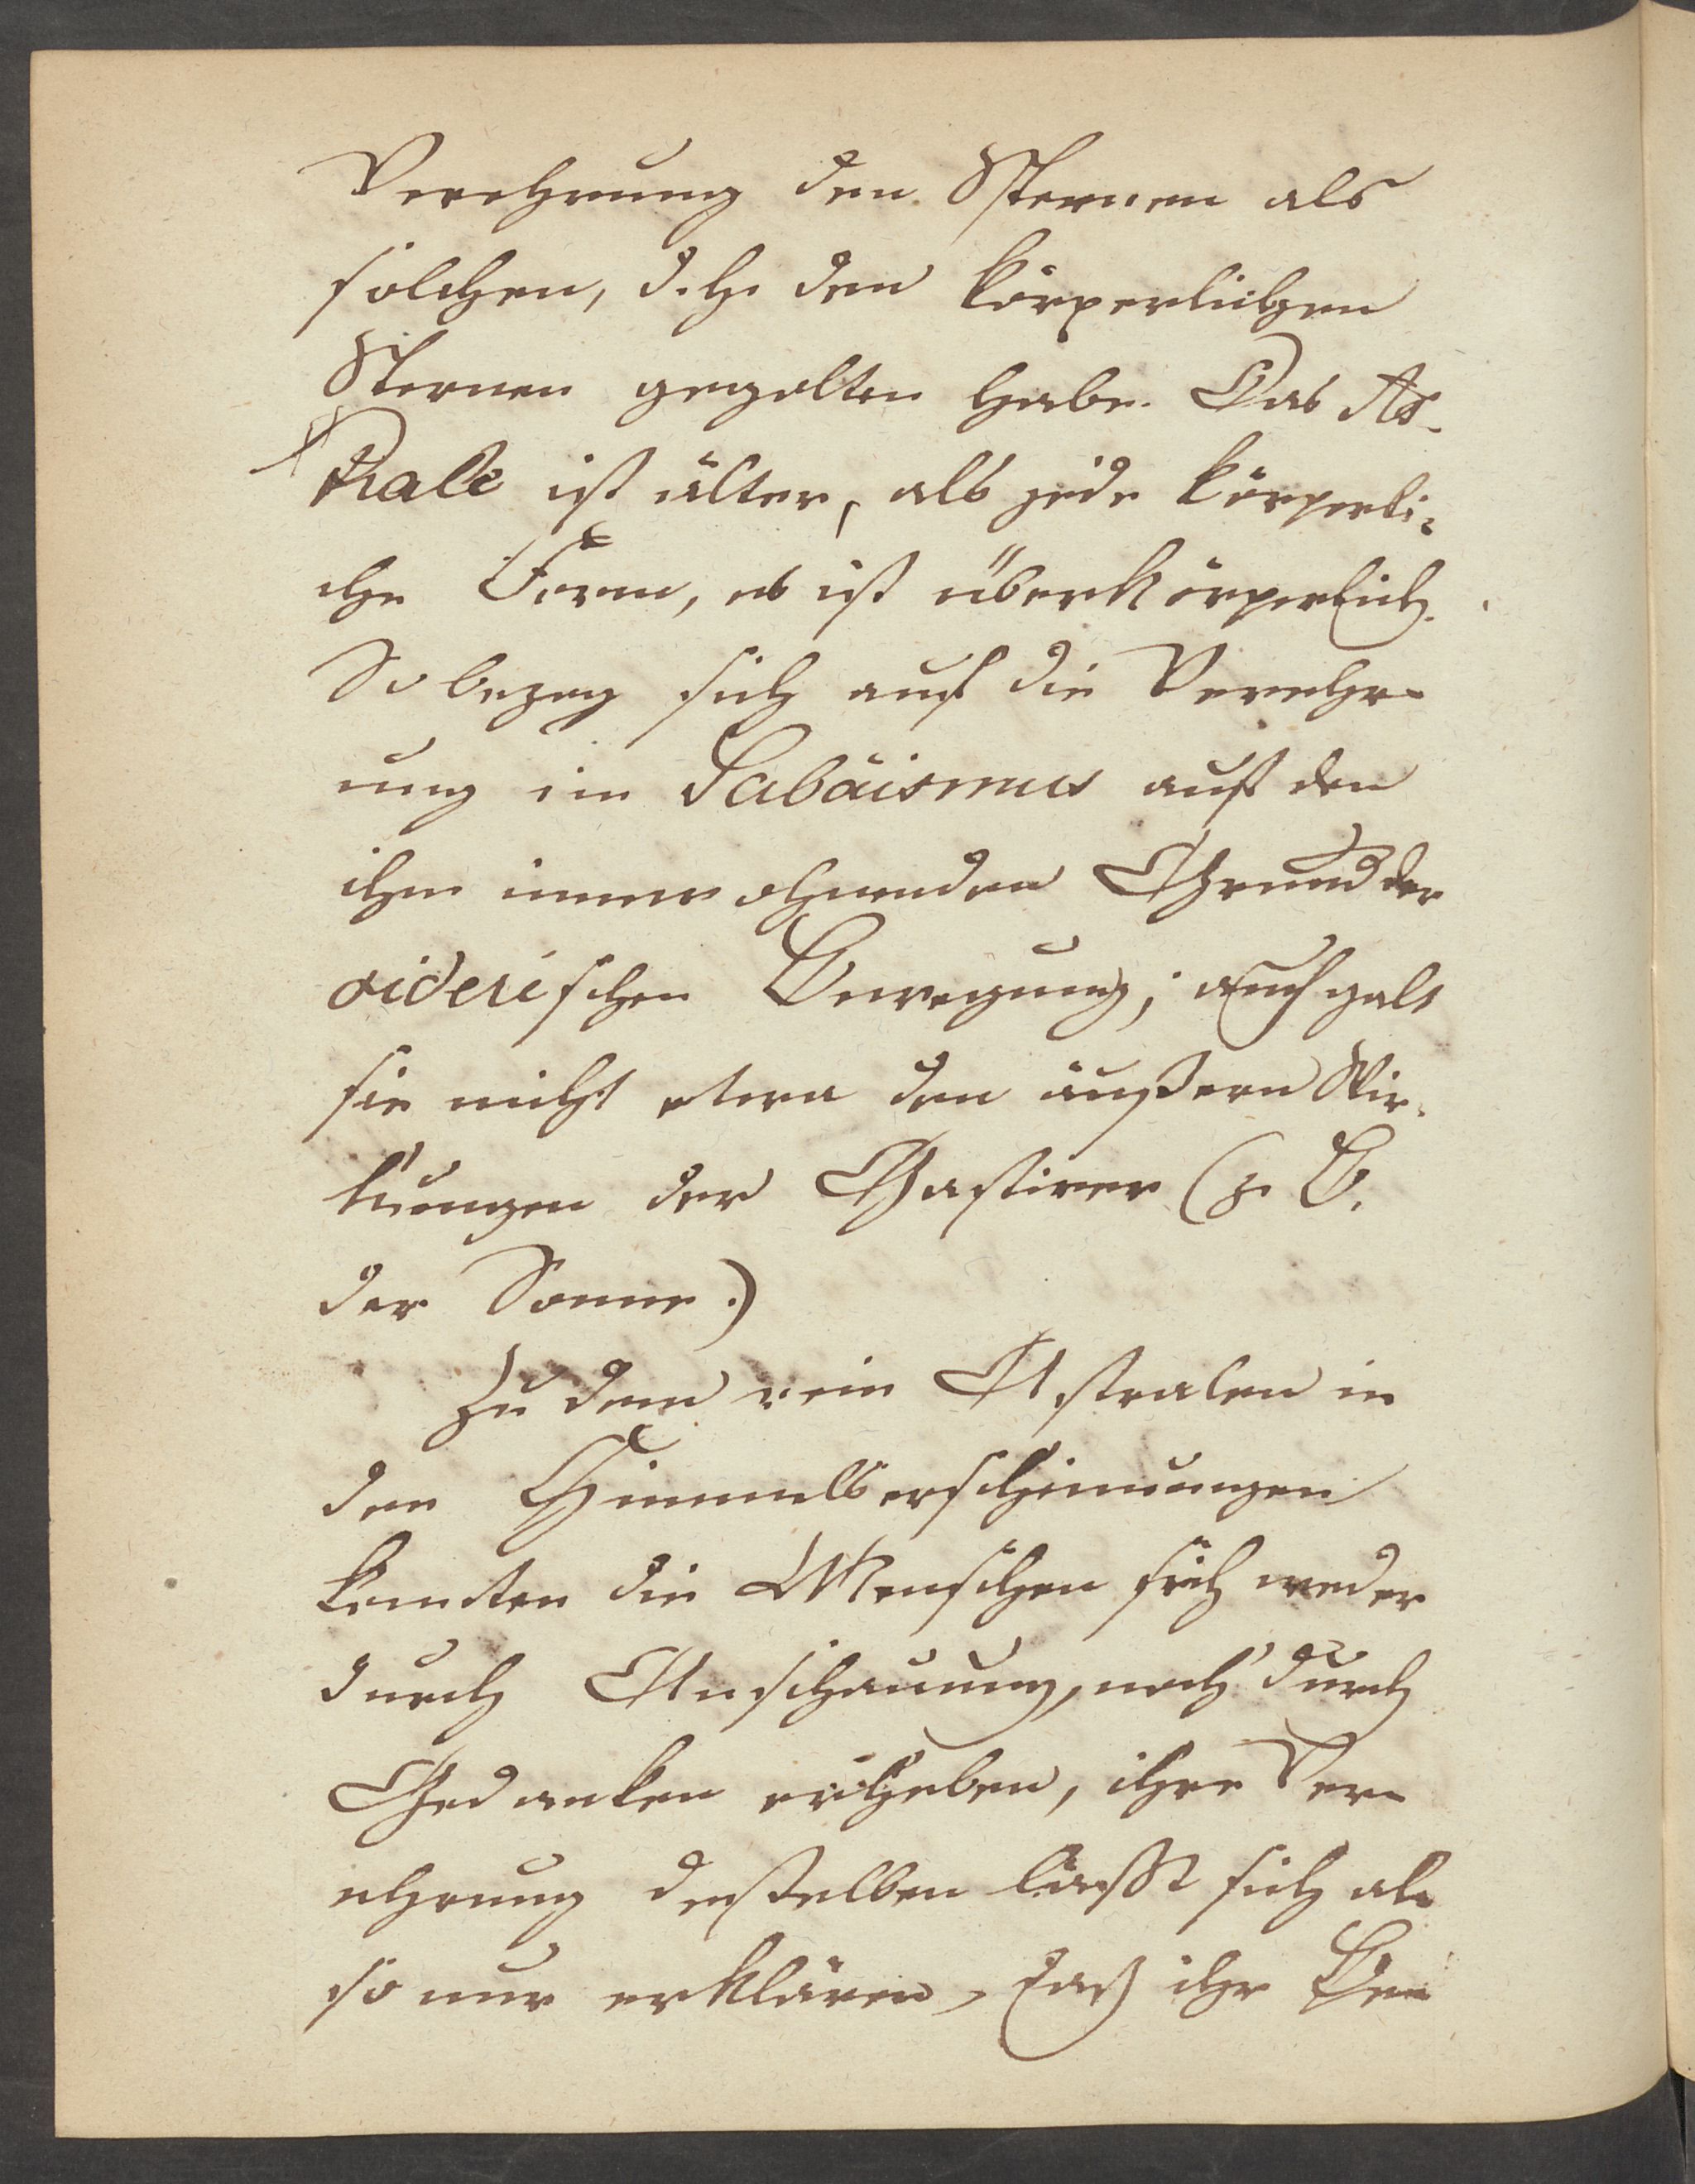 Verehrung den Sternen als
solchen, d. h. den körperlichen
Sternen gegolten habe. Das As-
trale ist älter, als jede körperli-
che Form, es ist überkörperlich.
So bezog sich auch die Verehr-
ung im Sabäismus auf den
ihm innewohnenden Grund der
siderischen Bewegung; auch galt
sie nicht etwa den äußern Wir-
kungen der Gestirne (z. B.
der Sonne.)
Zu dem rein Astralen in
den Himmelserscheinungen
konnten die Menschen sich weder
durch Anschauung, noch durch
Gedanken erheben, ihre Ver-
ehrung desselben lässt sich al-
so nur erklären, daß ihr